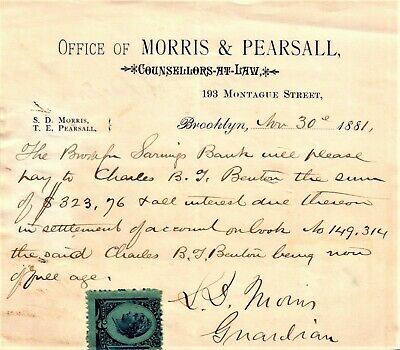 OFFICE OF MORRIS & PEARSALL,
COUNSELLORS-AT-LAW,
193 MONTAGUE STREET,
S. D. MORRIS,
T. E. PEARSALL,
Brooklyn, Nov 30th 1881,
The Brooklyn Savings Bank will please
pay to Charles B. T. Benton the sum
of $323,76 & all interest due thereon
in settlement of account on book No 149,314
the said Charles B. T. Benton being now
of full age.
S. D. Morris
Guardian